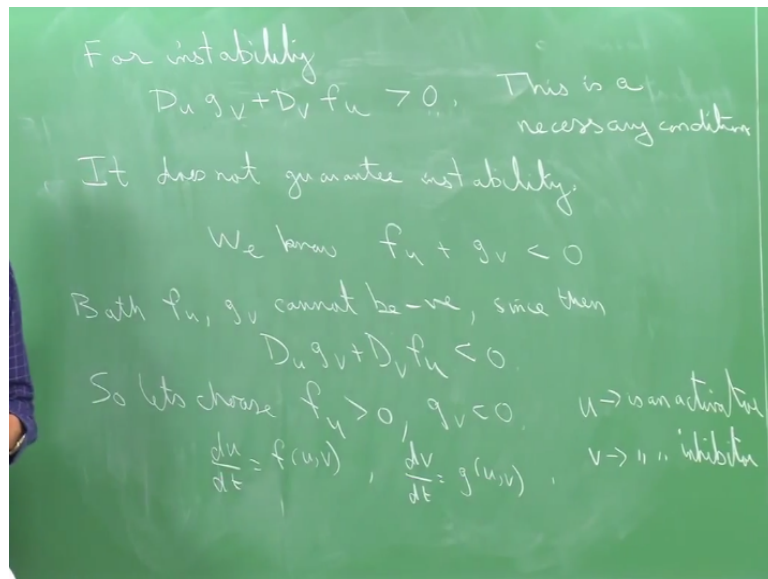 For instability
Du gv + Dv fu > 0. This is a
necessary condition
It does not guarantee instability.
We know fu + gv < 0
Both fu, gv cannot be -ve, since then
Du gv + Dv fu < 0.
So lets choose fu > 0, gv < 0. u → is an activator
du/dt = f(u,v), dv/dt = g(u,v), v → " " inhibitor